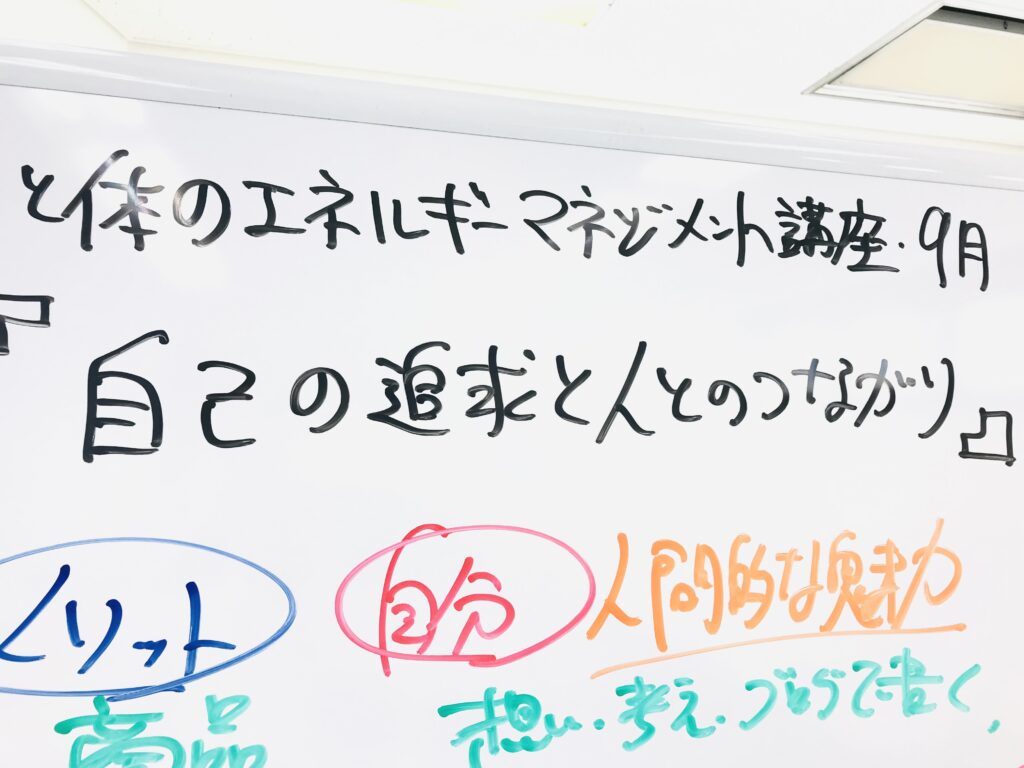 と体のエネルギーマネジメント講座・9月
『自己の追求と人とのつながり』
メリット 自分 人間的な魅力
商品 想い・考え・ブログで書く、